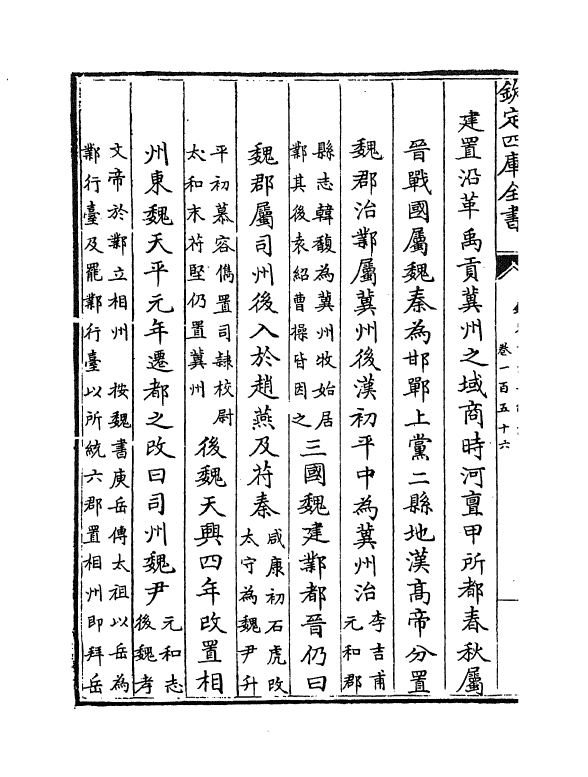 欽定四庫全書
卷一百五十六
建置沿革禹貢冀州之域商時河亶甲所都春秋屬
晉戰國屬魏秦為邯鄲上黨二縣地漢高帝分置
魏郡治鄴屬冀州後漢初平中為冀州治
李吉甫
元和郡
縣志韓馥為冀州牧始居
鄴其後袁紹曹操皆因之
三國魏建鄴都晉仍曰
魏郡屬司州後入於趙燕及苻秦
咸康初石虎改
太守為魏尹升
平初慕容儁置司隸校尉
太和末苻堅仍置冀州
後魏天興四年改置相
州東魏天平元年遷都之改曰司州魏尹
元和志
後魏孝
文帝於鄴立相州 按魏書庾岳傳太祖以岳為
鄴行臺及罷鄴行臺以所統六郡置相州即拜岳